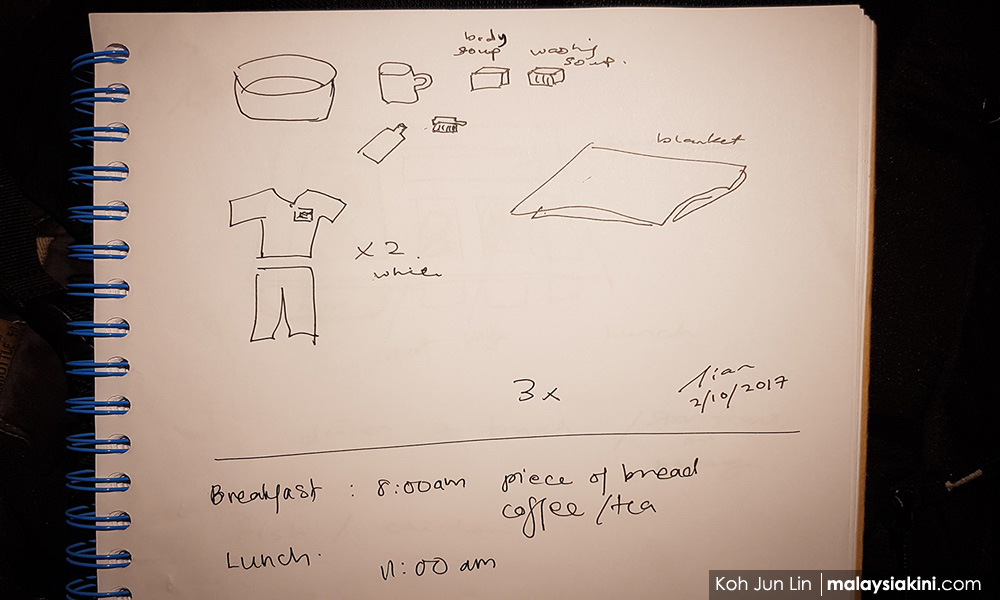 body
soup
washing
soup.
blanket
x 2.
white
3x
2/10/2017
Breakfast : 8:00am piece of bread
coffee/tea
Lunch. 11:00 am
Koh Jun Lin | malaysiakini.com